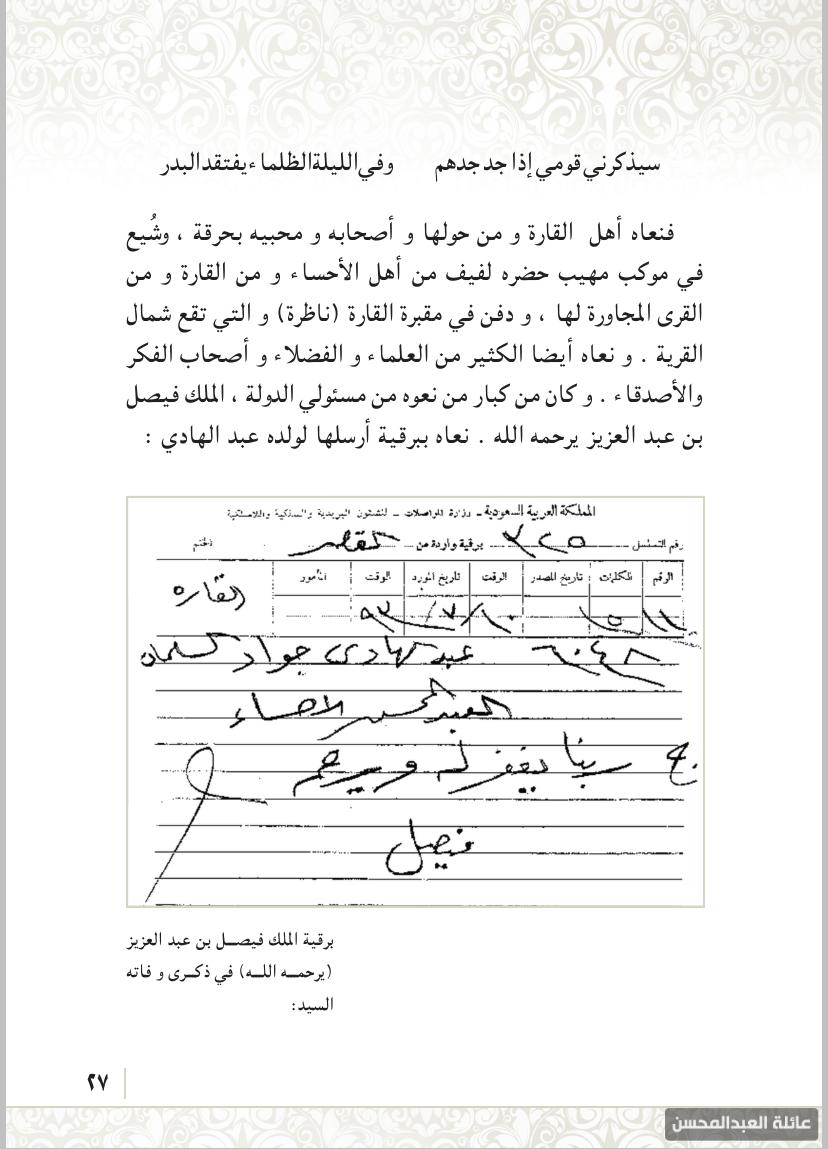 سيذكرني قومي إذا جد جدهم وفي الليلة الظلماء يفتقد البدر
فنعاه أهل القارة و من حولها و أصحابه و محبيه بحرقة ، وشُيع
في موكب مهيب حضره لفيف من أهل الأحساء و من القارة و من
القرى المجاورة لها ، و دفن في مقبرة القارة (ناظرة) و التي تقع شمال
القرية . و نعاه أيضا الكثير من العلماء و الفضلاء و أصحاب الفكر
والأصدقاء . و كان من كبار من نعوه من مسئولي الدولة ، الملك فيصل
بن عبد العزيز يرحمه الله . نعاه ببرقية أرسلها لولده عبد الهادي :
المملكة العربية السعودية ـ وزارة المواصلات ـ للشئون البريدية والسلكية واللاسلكية
رقم التسلسل ٣٢٥ برقية واردة من القصر الختم
الرقم الكلمات تاريخ المصدر الوقت تاريخ المورد الوقت المأمور
١١ ١٥ ١٠/٧/٩٣ القاره
٦٠٤٨ عبد الهادي جواد السلمان
العبد المحسن الاحساء
ج ربنا يغفر له ويرحم
فيصل
برقية الملك فيصل بن عبد العزيز
(يرحمه الله) في ذكرى و فاته
السيد:
٢٧
عائلة العبدالمحسن